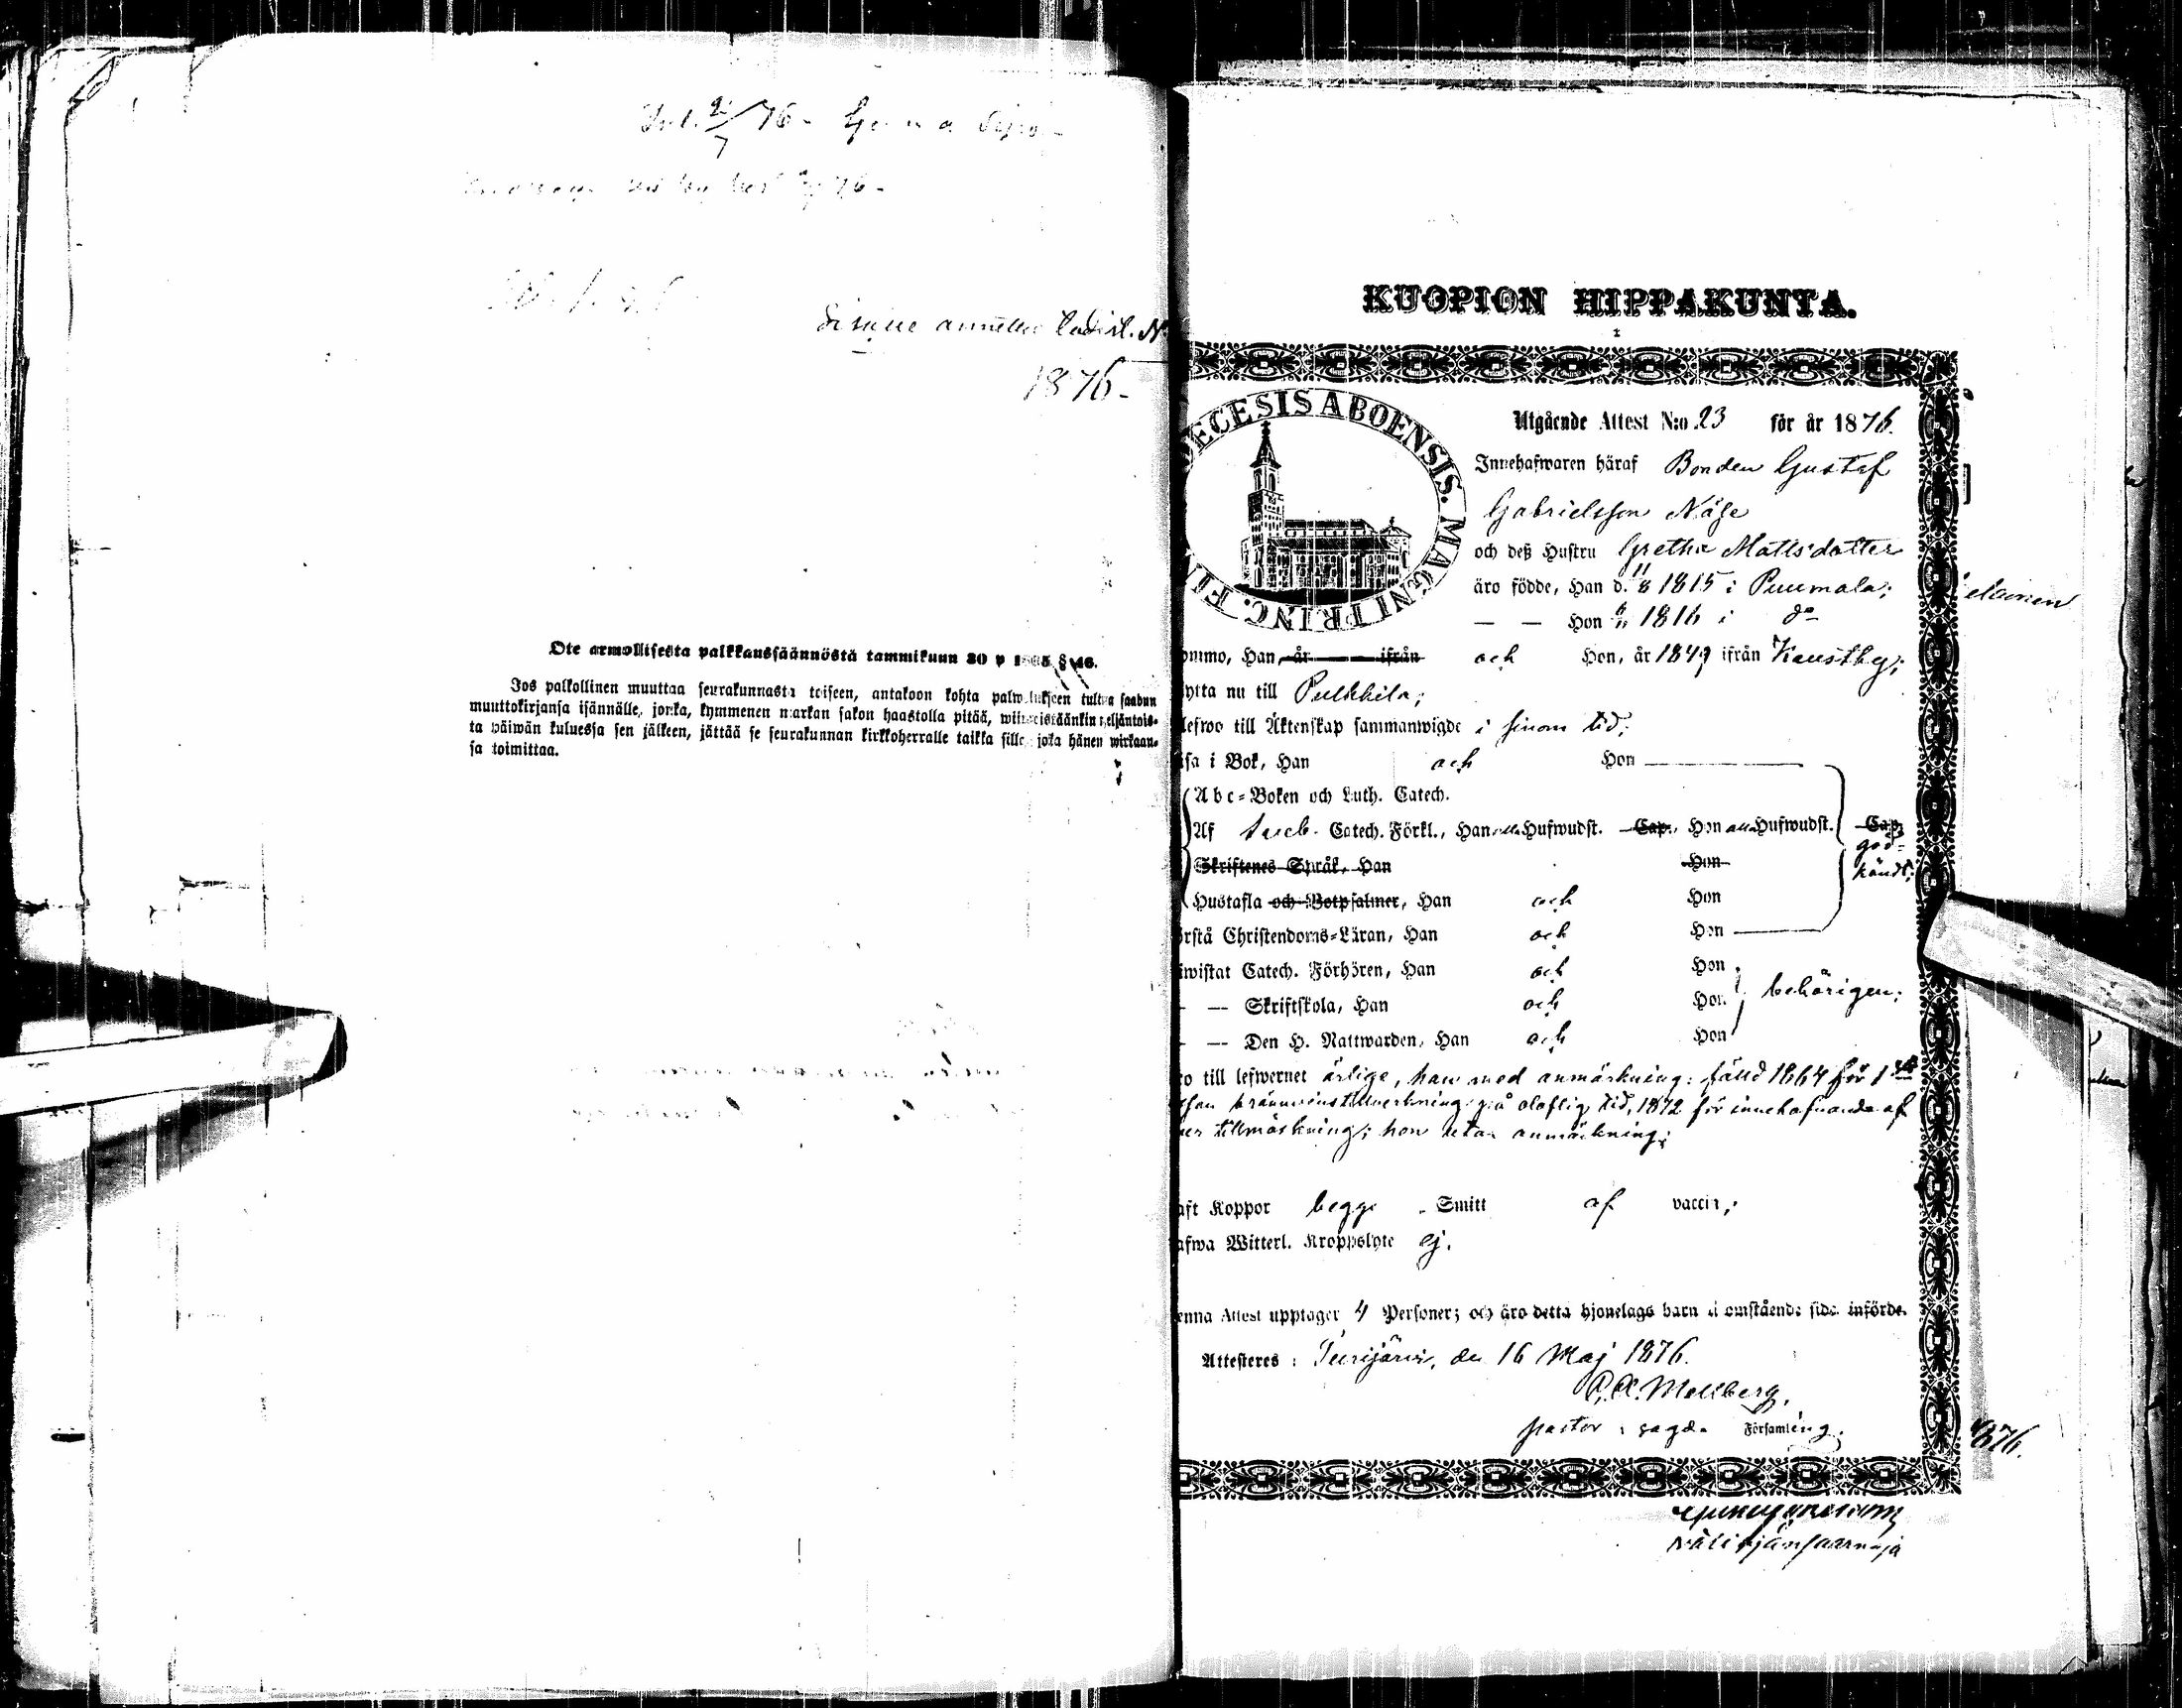 Inl. 2/7 76
Sisäne annettu todist. N
1876-
Ote armollisesta palkkaussäännöstä tammikuun 30 p § 46.
Jos palkollinen muuttaa seurakunnasta toiseen, antakoon kohta palwelukseen tultua saadun
muuttokirjansa isännälle, jonka, kymmenen markan sakon haastolla pitää, wiimeistäänkin neljäntois-
ta päiwän kuluessa sen jälkeen, jättää se seurakunnan kirkkoherralle taikka sille, joka hänen wirkaan-
sa toimittaa.
KUOPION HIPPAKUNTA.
ECESIS ABOENSIS. MAGNI PRINC. FIN
Utgående Attest N:o 23 för år 1876.
Innehafwaren häraf Bonden Gustaf
Gabrielsson Näse
och deß Hustru Gretha Mattsdotter
äro födde, Han d. 11/8 1815 i Puumala;
— — Hon 1816 i do
ommo, Han, år ifrån och Hon, år 1849 ifrån Kaustby;
ytta nu till Pulkkila;
lefwo till Äktenskap sammanwigde i sinom tid;
äsa i Bok, Han och Hon
Abc-Boken och Luth. Catech.
Af Sweb. Catech. Förkl., Han alla Hufwudst. Cap., Hon alla Hufwudst. Cap.
god-
Skriftenes Språk, Han Hon
kändt;
Hustafla och Botpsalmer, Han och Hon
örstå Christendoms-Läran, Han och Hon
iwistat Catech. Förhören, Han och Hon
behörigen;
— Skriftskola, Han och Hon
— Den H. Nattwarden, Han och Hon
o till lefwernet ärlige, han med anmärkning: fälld 1864 för 1sta
bränwinstillverkning på oloflig tid, 1872 för innehafvande af
tillmäskning; hon utan anmärkning;
aft Koppor begge Smitt af vaccin;
afwa Witterl. Kroppslyte ej.
enna Attest upptager 4 Personer; och äro detta hjonelags barn å omstående sida införde.
Attesteres: Perijärvi, den 16 Maj 1876.
Mollberg.
pastor i sagde Församling.
1876.